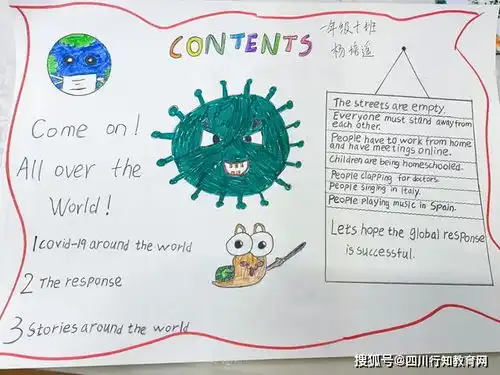 CONTENTS
一年级十班
杨梓遥
Come on!
All over the
World!
1 covid-19 around the world
2 The response
3 Stories around the world
The streets are empty
Everyone must stand away from
each other.
People have to work from home
and have meetings online.
Children are being homeschooled.
People clapping for doctors.
People singing in Italy.
People playing music in Spain.
Lets hope the global response
is successful.
搜狐号@四川行知教育网